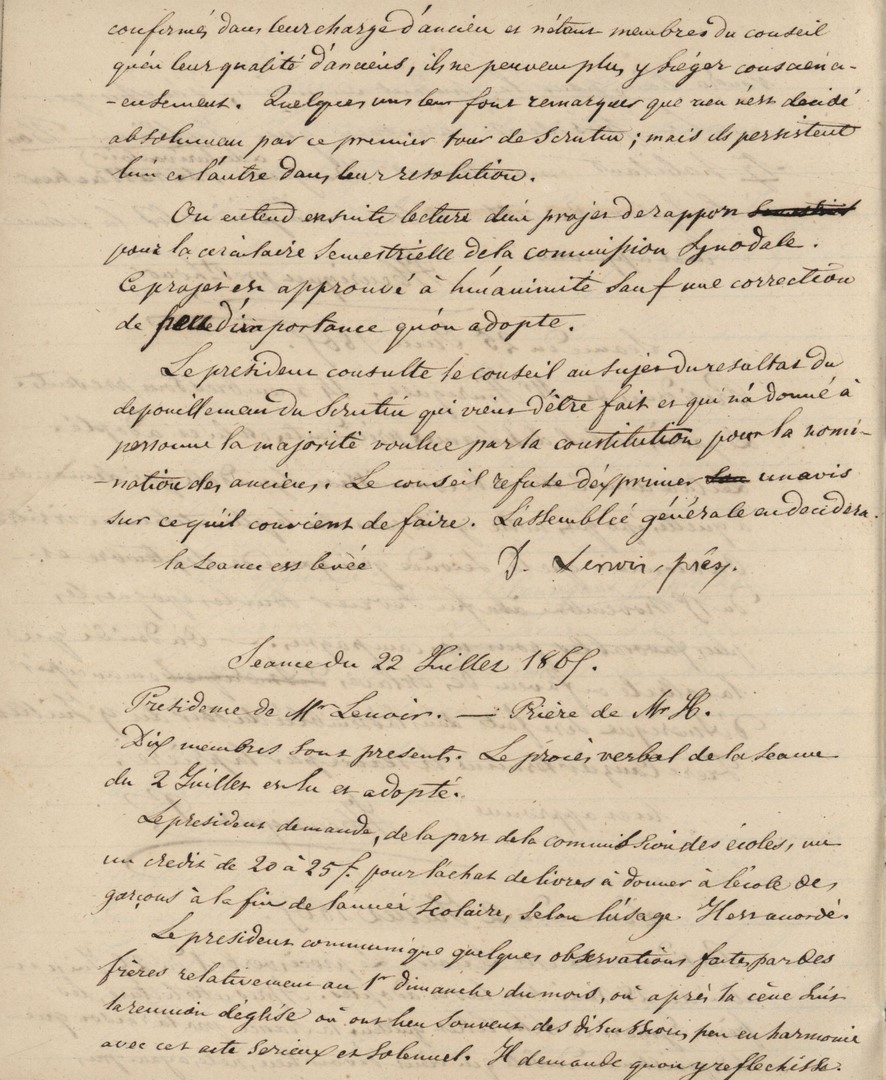 confirmés dans leur charge d'ancien et n'étant membres du conseil
qu'en leur qualité d'anciens, ils ne peuvent plus y siéger conscienci-
-eusement. Quelques uns leur font remarquer que rien n'est decidé
absolument par ce premier tour de Scrutin ; mais ils persistent
l'un et l'autre dans leur resolution.
On entend ensuite lecture d'un projet de rapport
pour la circulaire Semestrielle de la commission Synodale.
Ce projet est approuvé à l'unanimité Sauf une correction
de peu d'importance qu'on adopte.
Le president consulte le conseil au sujet du resultat du
depouillement du Scrutin qui vient d'être fait et qui n'a donné à
personne la majorité voulue par la constitution pour la nomi-
-nation des anciens. Le conseil refuse d'exprimer un avis
sur ce qu'il convient de faire. L'assemblée générale en decidera.
la Seance est levée D. Lenoir, prés.
Seance du 22 Juillet 1865.
Presidence de Mr Lenoir. — Prière de Mr H.
Dix membres sont presents. Le procès verbal de la Seance
du 2 Juillet est lu et adopté.
Le president demande, de la part de la commission des écoles, un
un credit de 20 à 25 f. pour l'achat de livres à donner à l'école des
garçons à la fin de l'année Scolaire, selon l'usage. Il est accordé.
Le president communique quelques observations faites par des
frères relativement au 1r dimanche du mois, où après la cène suit
la reunion d'église où ont lieu souvent des discussions peu en harmonie
avec cet acte Serieux et Solennel. Il demande qu'on y reflechisse.